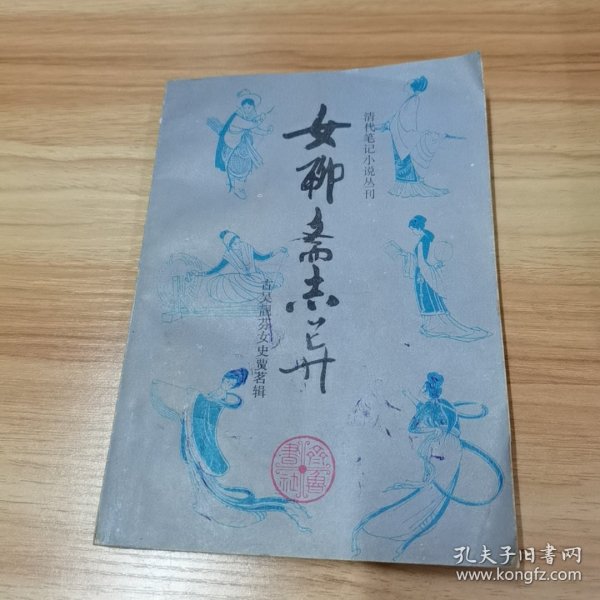 清代笔记小说丛刊
女聊斋志异
古吴靓芬女史贾茗辑
齐鲁書社
孔夫子旧书网
www.kongfz.com